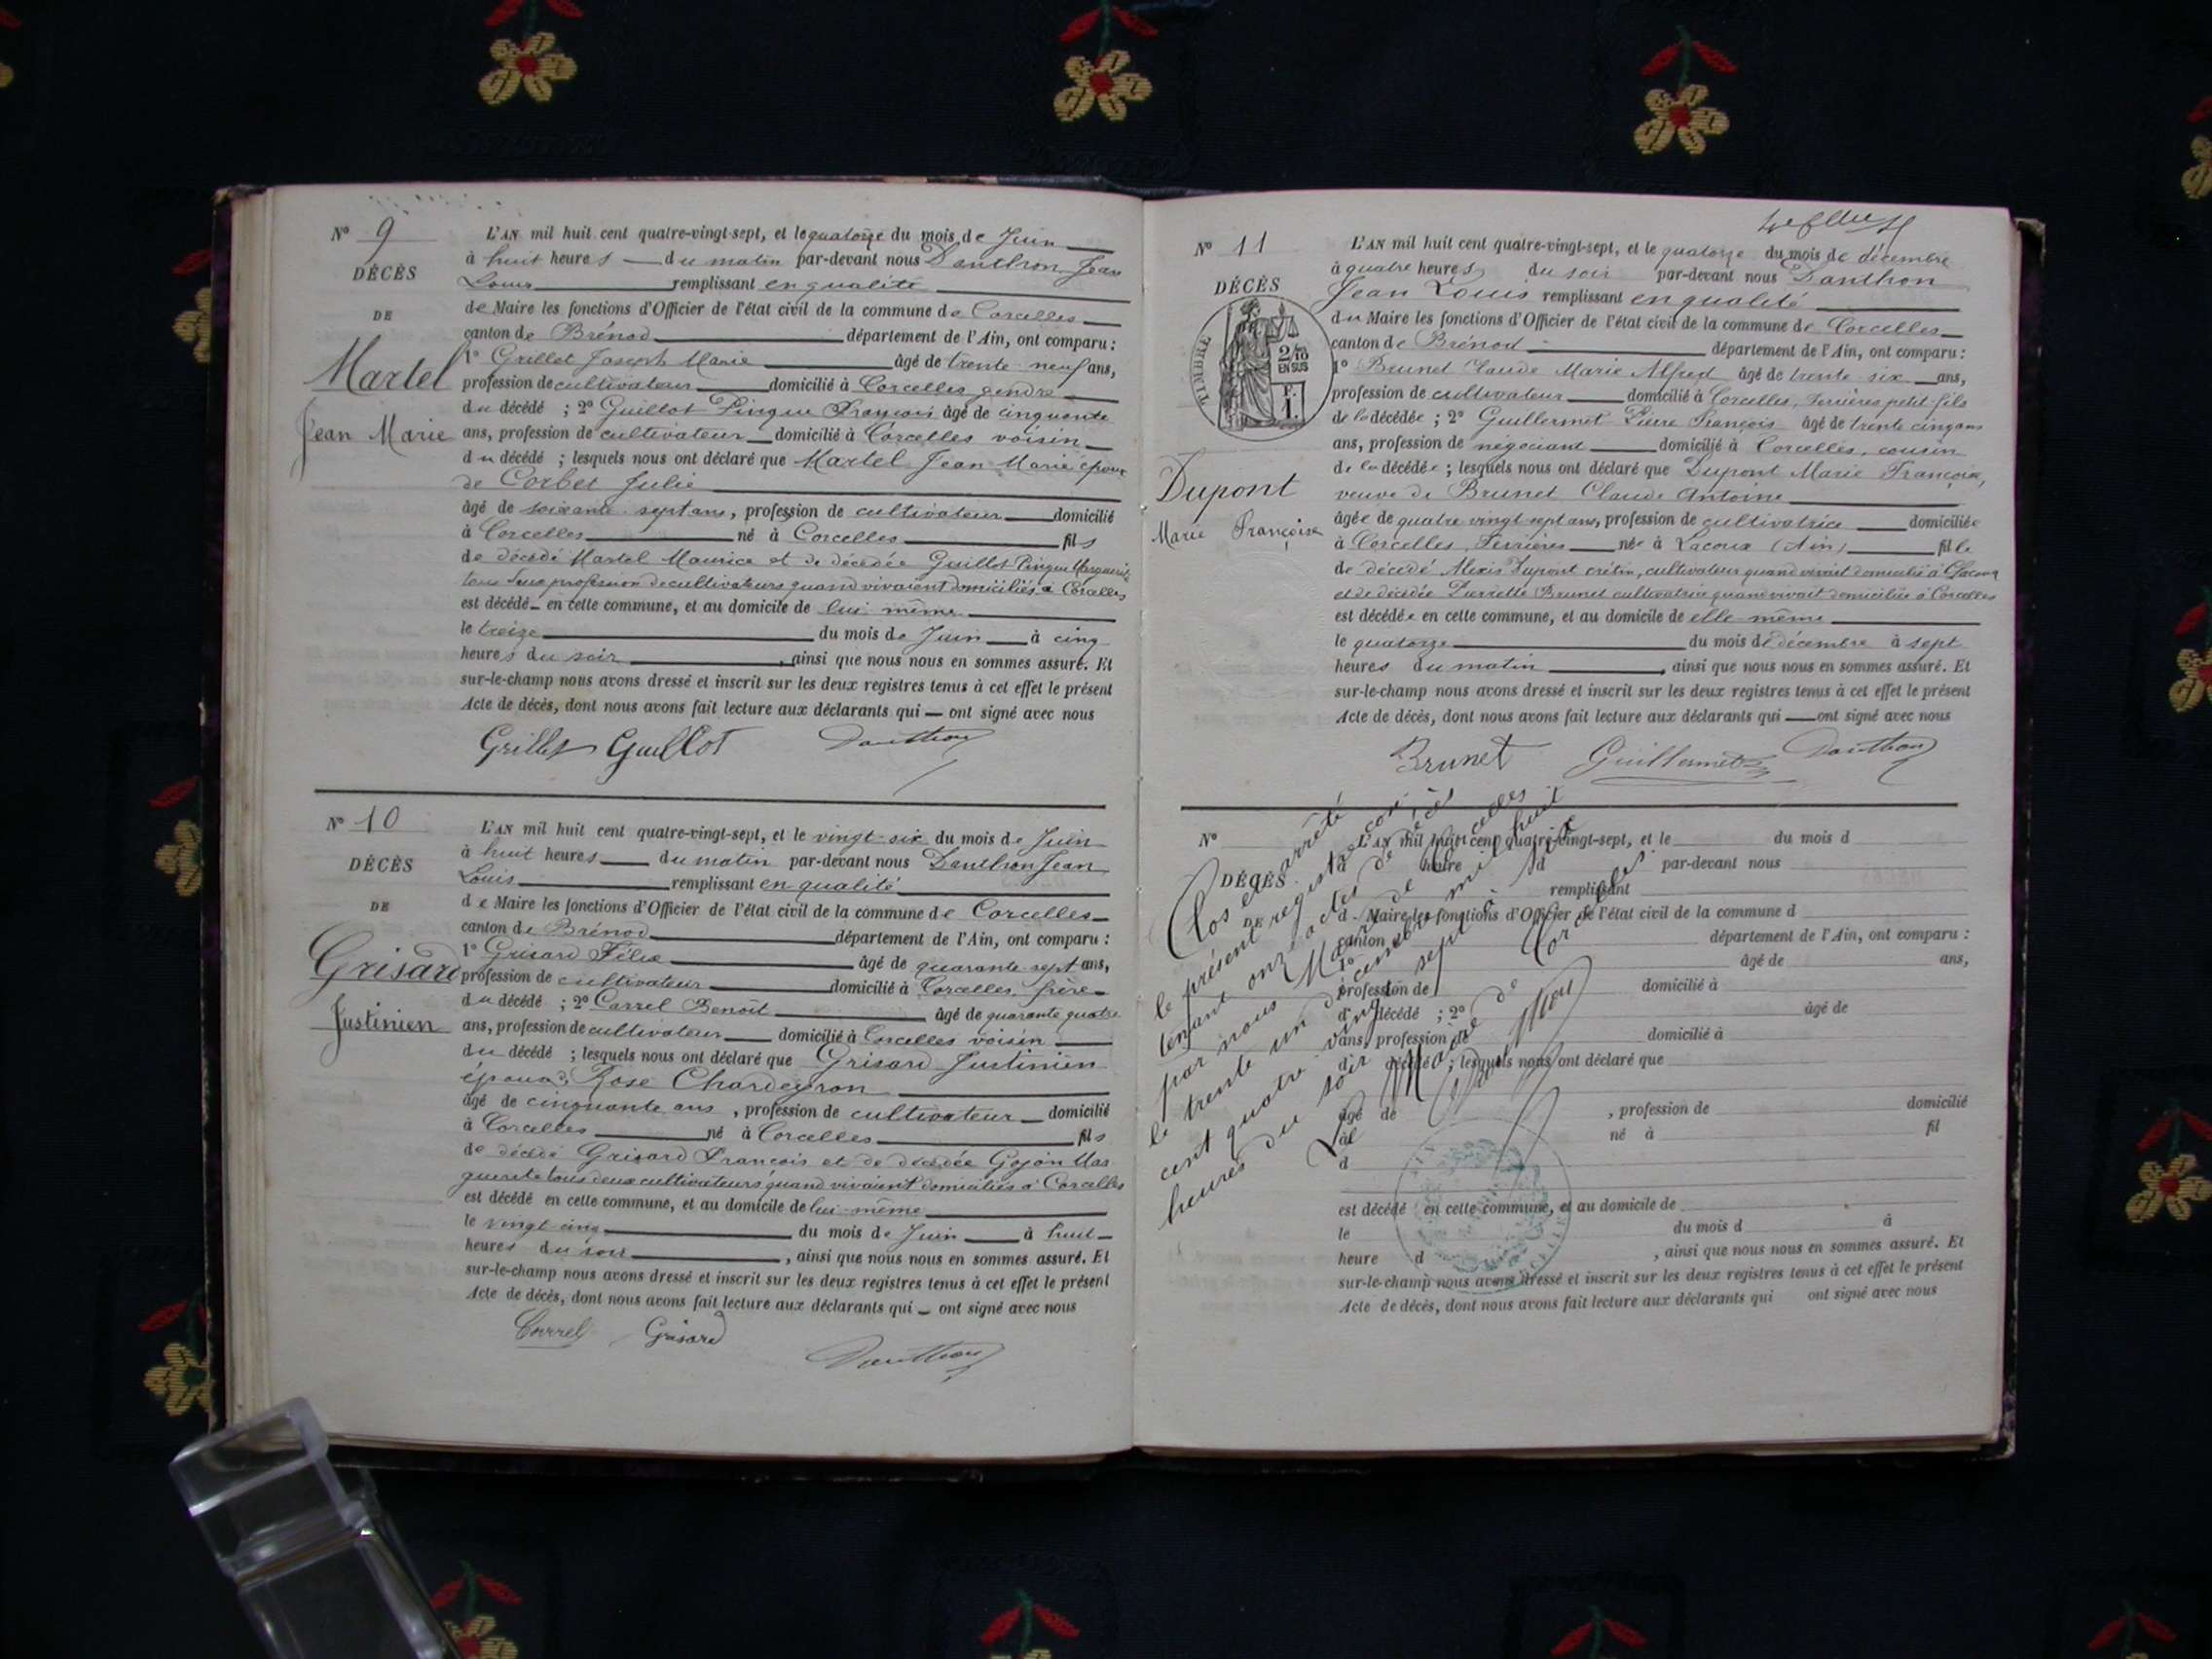 N° 9
DÉCÈS
DE
Martel
Jean Marie
L'AN mil huit cent quatre-vingt-sept, et le quatorze du mois de Juin
à huit heures du matin par-devant nous Danthon Jean
Louis remplissant en qualité
de Maire les fonctions d'Officier de l'état civil de la commune de Corcelles
canton de Brénod département de l'Ain, ont comparu :
1° Grillet Joseph Marie âgé de trente neuf ans,
profession de cultivateur domicilié à Corcelles gendre
du décédé ; 2° Guillot Pingue François âgé de cinquante
ans, profession de cultivateur domicilié à Corcelles voisin
du décédé ; lesquels nous ont déclaré que Martel Jean Marie époux
de Corbet Julie
âgé de soixante sept ans, profession de cultivateur domicilié
à Corcelles né à Corcelles fils
de décédé Martel Maurice et de décédée Guillot Pingue Marguerite
tous deux profession de cultivateurs quand vivaient domiciliés à Corcelles
est décédé en cette commune, et au domicile de lui même
le treize du mois de Juin à cinq
heures du soir, ainsi que nous nous en sommes assuré. Et
sur-le-champ nous avons dressé et inscrit sur les deux registres tenus à cet effet le présent
Acte de décès, dont nous avons fait lecture aux déclarants qui ont signé avec nous
Grillet Guillot Danthon
N° 10
DÉCÈS
DE
Grisard
Justinien
L'AN mil huit cent quatre-vingt-sept, et le vingt-six du mois de Juin
à huit heures du matin par-devant nous Danthon Jean
Louis remplissant en qualité
de Maire les fonctions d'Officier de l'état civil de la commune de Corcelles
canton de Brénod département de l'Ain, ont comparu :
1° Grisard Félix âgé de quarante sept ans,
profession de cultivateur domicilié à Corcelles frère
du décédé ; 2° Carrel Benoît âgé de quarante quatre
ans, profession de cultivateur domicilié à Corcelles voisin
du décédé ; lesquels nous ont déclaré que Grisard Justinien
époux de Rose Chardeyron
âgé de cinquante ans, profession de cultivateur domicilié
à Corcelles né à Corcelles fils
de décédé Grisard François et de décédée Gojon Mar
guerite tous deux cultivateurs quand vivaient domiciliés à Corcelles
est décédé en cette commune, et au domicile de lui-même
le vingt cinq du mois de Juin à huit
heures du soir, ainsi que nous nous en sommes assuré. Et
sur-le-champ nous avons dressé et inscrit sur les deux registres tenus à cet effet le présent
Acte de décès, dont nous avons fait lecture aux déclarants qui ont signé avec nous
Carrel Grisard
Danthon
N° 11
DÉCÈS
TIMBRE
2/10
EN SUS
F.
1.
Dupont
Marie Françoise
L'AN mil huit cent quatre-vingt-sept, et le quatorze du mois de décembre
à quatre heures du soir par-devant nous Danthon
Jean Louis remplissant en qualité
du Maire les fonctions d'Officier de l'état civil de la commune de Corcelles
canton de Brénod département de l'Ain, ont comparu :
1° Brunet Claude Marie Alfred âgé de trente six ans,
profession de cultivateur domicilié à Corcelles, Ferrières petit-fils
de la décédée ; 2° Guillermet Pierre François âgé de trente cinq ans
ans, profession de négociant domicilié à Corcelles, cousin
de la décédée ; lesquels nous ont déclaré que Dupont Marie Françoise,
veuve de Brunet Claude Antoine
âgée de quatre vingt sept ans, profession de cultivatrice domiciliée
à Corcelles, Ferrières née à Lacoux (Ain) fille
de décédé Alexis Dupont crétin, cultivateur quand vivait domicilié à Lacoux
et de décédée Pierrette Brunet cultivatrice quand vivait domiciliée à Corcelles
est décédée en cette commune, et au domicile de elle-même
le quatorze du mois de décembre à sept
heures du matin, ainsi que nous nous en sommes assuré. Et
sur-le-champ nous avons dressé et inscrit sur les deux registres tenus à cet effet le présent
Acte de décès, dont nous avons fait lecture aux déclarants qui ont signé avec nous
Brunet Guillermet Danthon
N°
DÉCÈS
DE
L'AN mil huit cent quatre-vingt-sept, et le du mois d
à heure d par-devant nous
remplissant
d Maire les fonctions d'Officier de l'état civil de la commune d
canton d département de l'Ain, ont comparu :
1° âgé de ans,
profession de domicilié à
d décédé ; 2° âgé de
ans, profession de domicilié à
d décédé ; lesquels nous ont déclaré que
âgé de , profession de domicilié
à né à fil
d
est décédé en cette commune, et au domicile de
le du mois d à
heure d , ainsi que nous nous en sommes assuré. Et
sur-le-champ nous avons dressé et inscrit sur les deux registres tenus à cet effet le présent
Acte de décès, dont nous avons fait lecture aux déclarants qui ont signé avec nous
Clos et arrêté
le présent registre con
tenant onze actes de décès
par nous Maire de Corcelles
le trente un décembre mil huit
cent quatre vingt sept à
heures du soir
Le Maire de Corcelles
Danthon